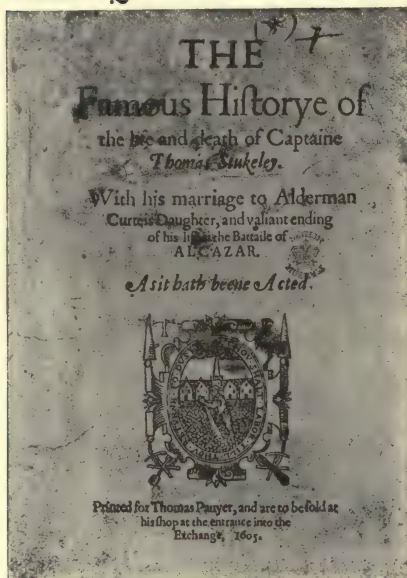 THE
Famous Historye of
the life and death of Captaine
Thomas Stukeley.
With his marriage to Alderman
Curteis Daughter, and valiant ending
of his life at the Battaile of
ALCAZAR.
As it hath beene Acted.
THOU SHALT LABOR TILL THOU RETURN TO DUST
Printed for Thomas Pauyer, and are to be sold at
his shop at the entrance into the
Exchange, 1605.